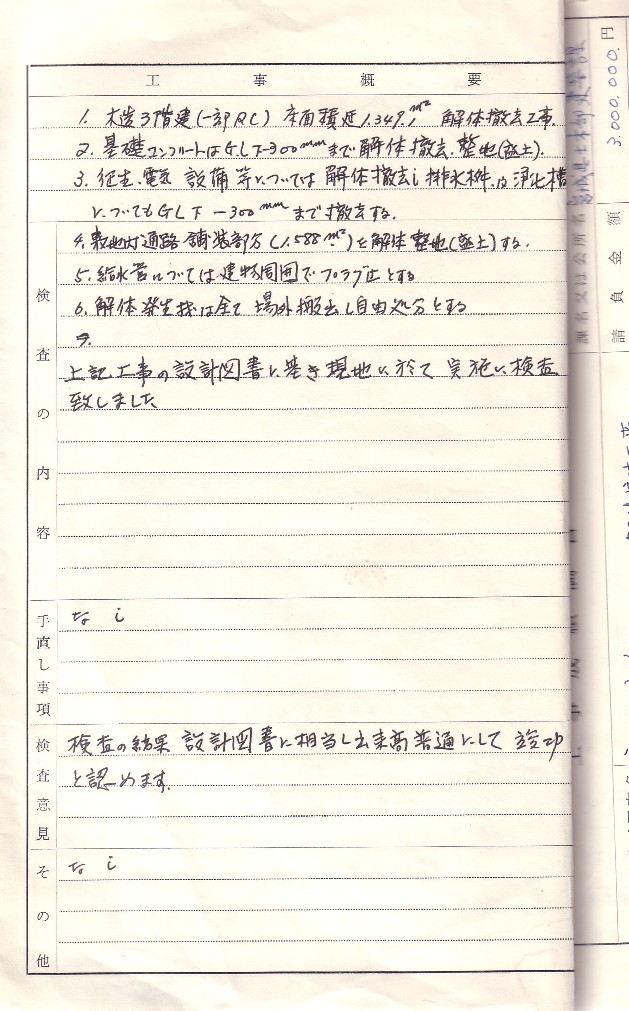 工事概要
1. 木造3階建(一部RC) 床面積延1.349.㎡ 解体撤去工事.
2. 基礎コンクリートはGL下-300mmまで解体撤去.整地(盛土).
3. 衛生.電気 設備等については解体撤去し排水桝.は浄化槽
についてもGL下-300mmまで撤去する.
検査の内容
4. 敷地内通路舗装部分(1.588㎡)を解体 整地(盛土)する.
5. 給水管については建物周囲でプラグ止とする
6. 解体発生材は全て場外搬出し自由処分とする
7.
上記工事の設計図書に基き現地に於て 実施に検査
致しました
手直し事項
なし
検査意見
検査の結果 設計図書に相当し出来高普通にして 竣功
と認めます.
その他
なし
課名又は公所名
請負金額
3.000.000.円